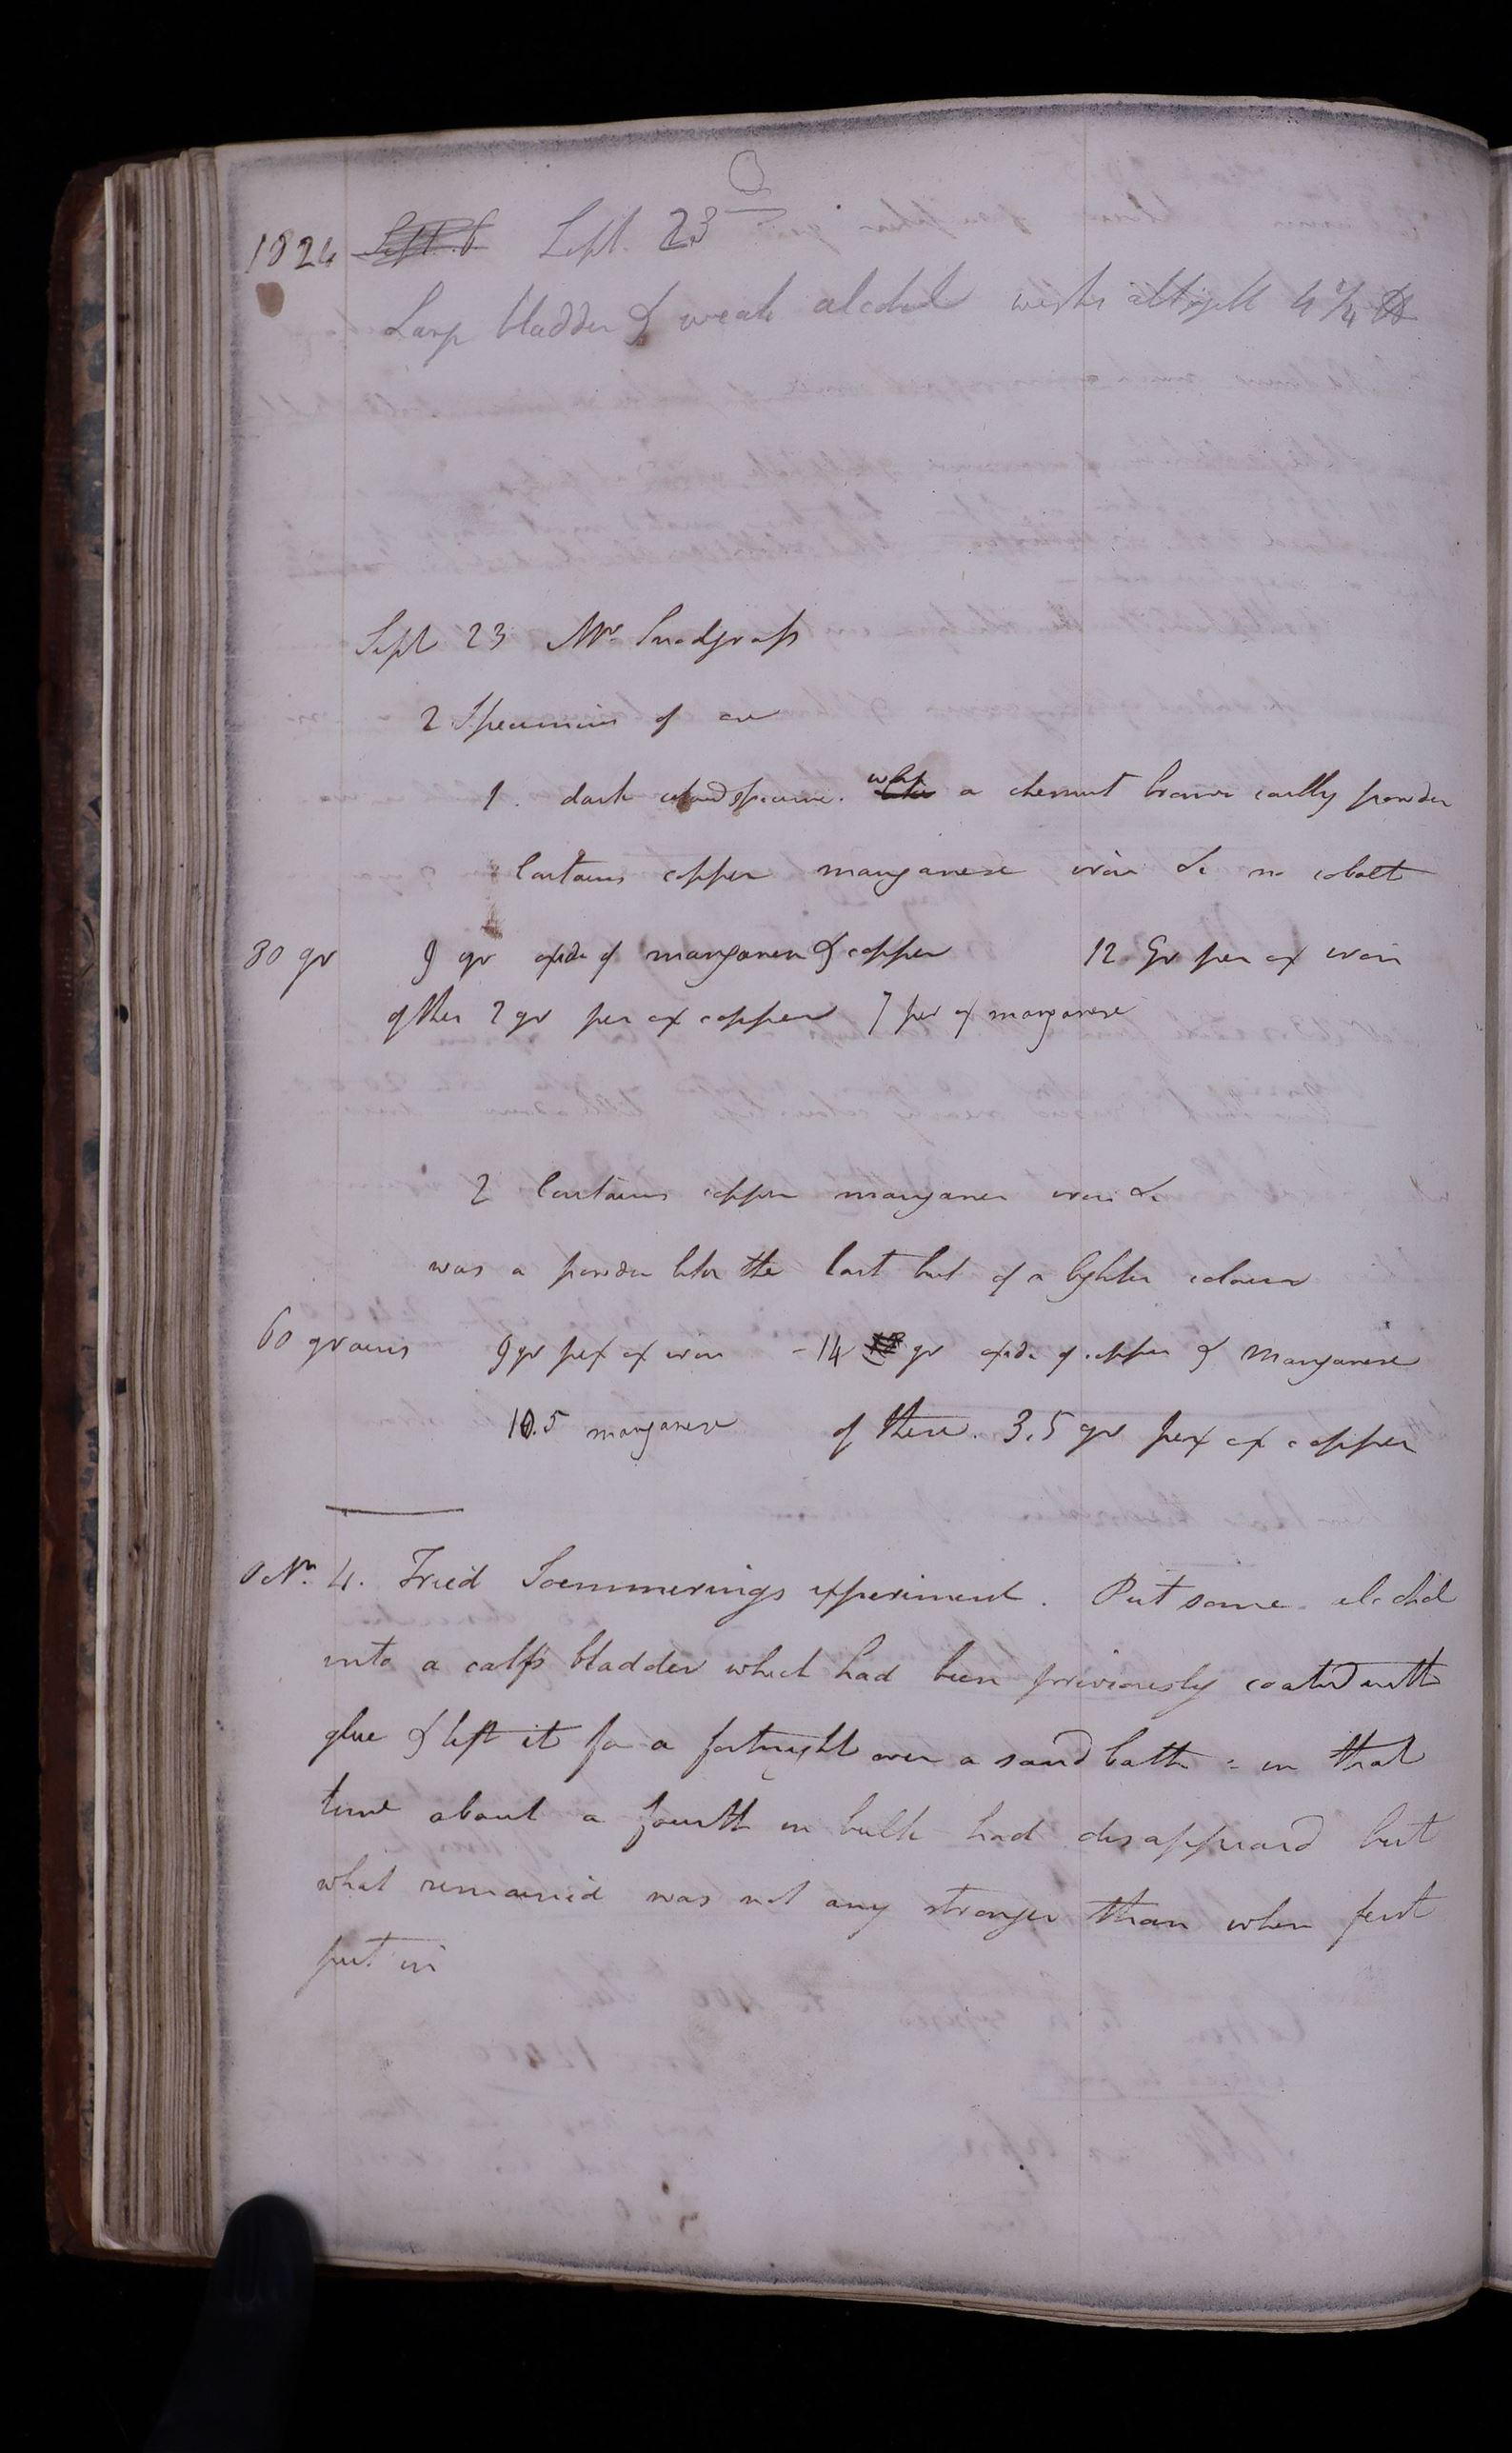 1824 Sept. 6 Sept. 23
Large bladder & weak alcohol weighs altogether 4 3/4 lb
Sept 23 Mr Snodgrass
2 Specimens of ore
1. dark coloured specimen. was a chesnut brown earthy powder
Contains copper manganese iron &c no cobalt
30 gr 9 gr oxide of manganese & copper 12 Gr per ox iron
of these 2 gr per ox copper 7 per ox manganese
2 Contains copper manganese iron &c
was a powder like the last but of a lighter colour
60 grains 9 gr pex ox iron - 14 gr oxide of copper & Manganese
10.5 manganese of these. 3.5 gr pex ox copper
No. 4. Tried Soemmerings experiment. Put some alcohol
into a calfs bladder which had been previously coated with
glue & left it for a fortnight over a sand bath :- in that
time about a fourth in bulk had disappeared but
what remained was not any stronger than when first
put in